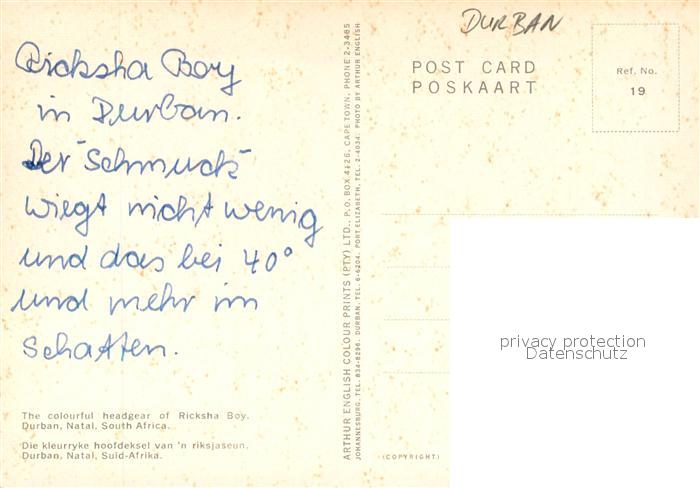 Ricksha Boy
in Durban.
Der "Schmuck"
wiegt nicht wenig
und das bei 40°
und mehr im
Schatten.
The colourful headgear of Ricksha Boy.
Durban, Natal, South Africa.
Die kleurryke hoofdeksel van 'n riksjaseun.
Durban, Natal, Suid-Afrika.
ARTHUR ENGLISH COLOUR PRINTS (PTY) LTD. P.O. BOX 4126, CAPE TOWN, PHONE 2-3465
JOHANNESBURG, TEL. 834-8296. DURBAN, TEL. 6-6204. PORT ELIZABETH, TEL. 2-4034. PHOTO BY ARTHUR ENGLISH
DURBAN
POST CARD
POSKAART
Ref. No.
19
privacy protection
Datenschutz
(COPYRIGHT)